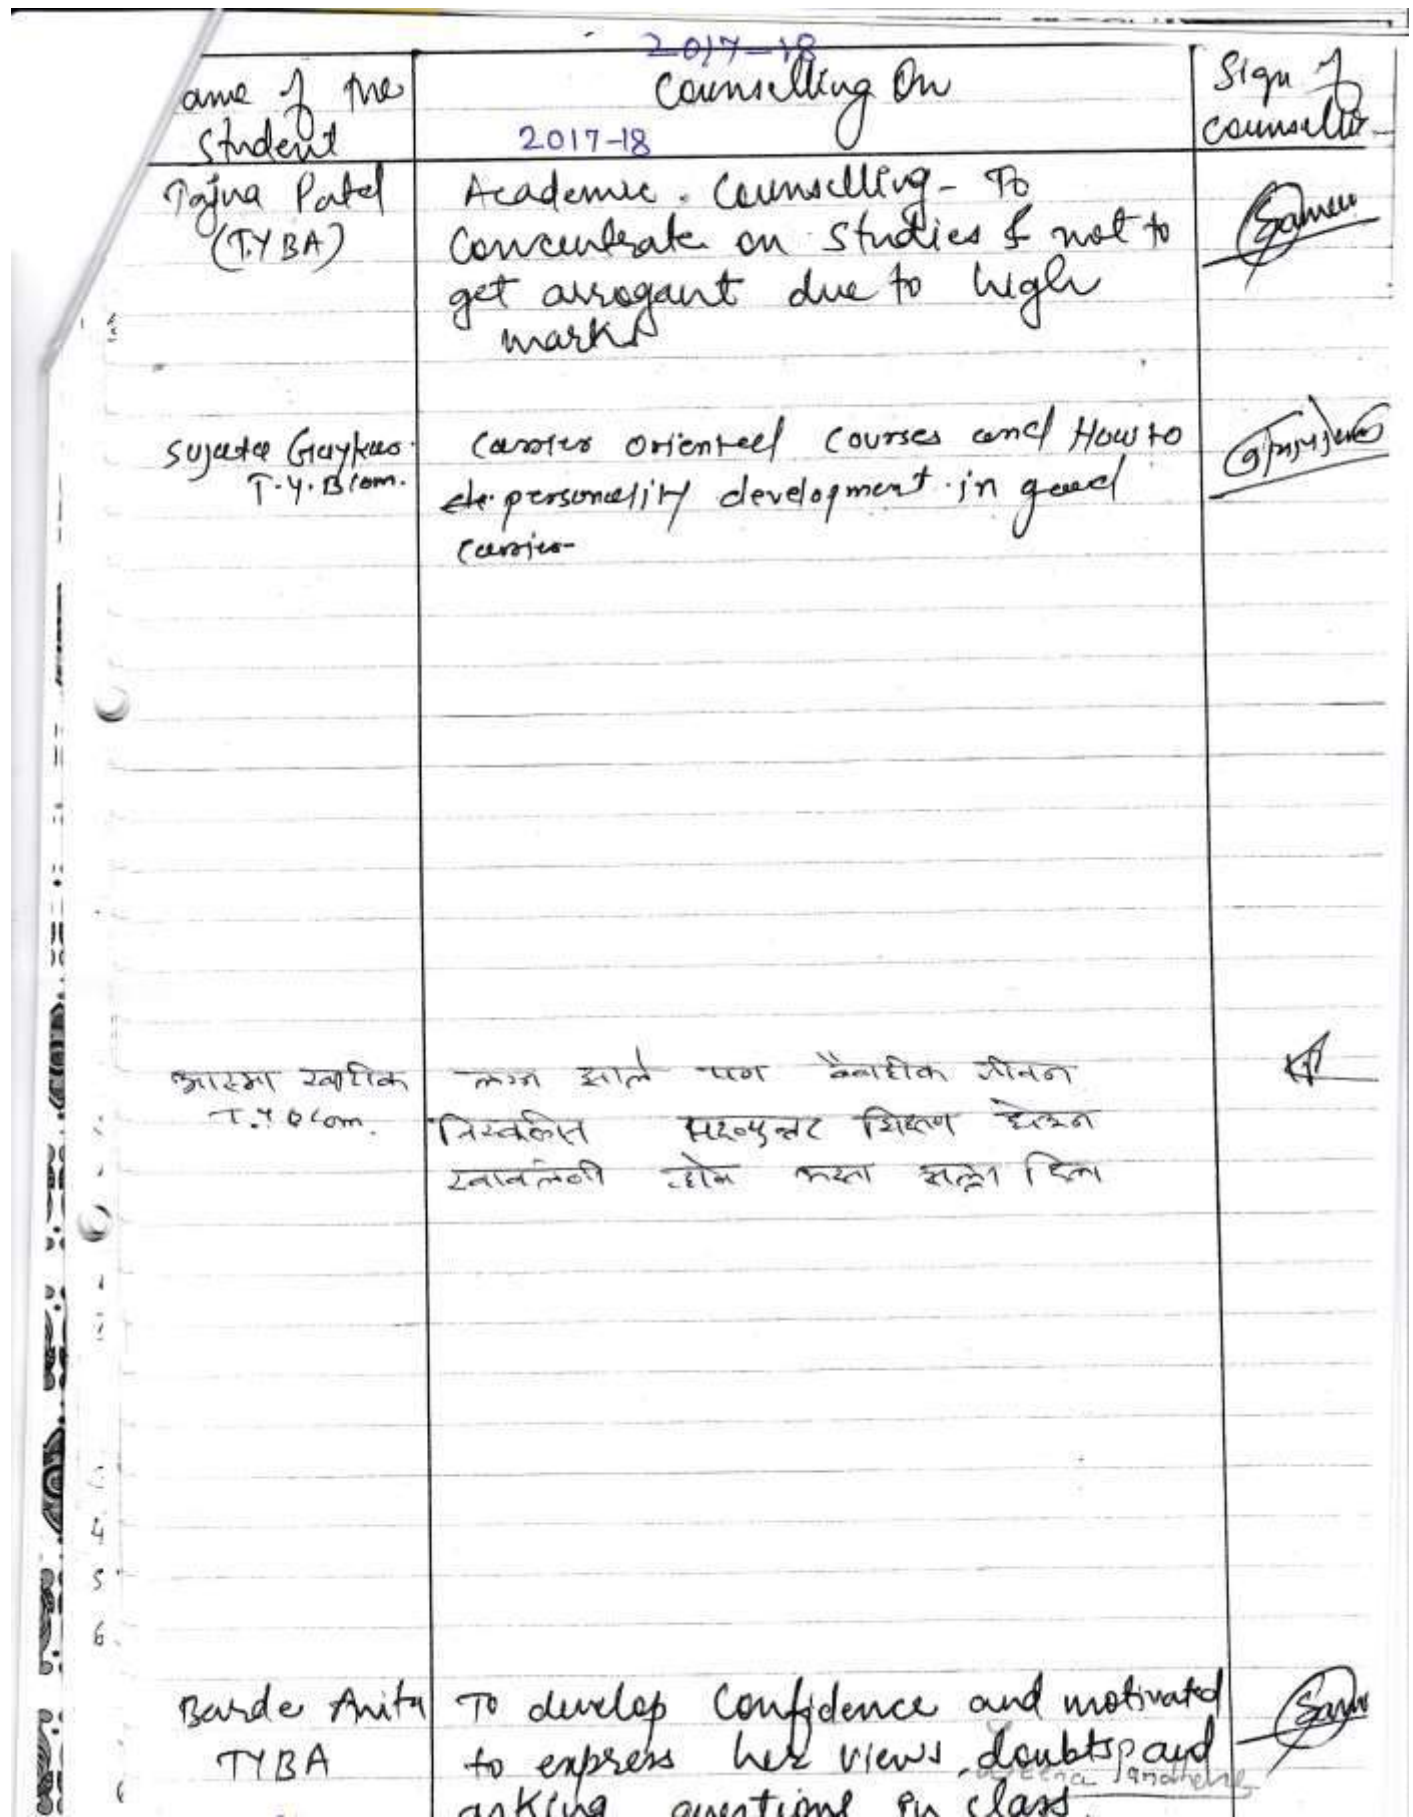 2017-18
ame of the Counselling On Sign of
Student 2017-18 Counsello
Tajna Patel Academic. Counselling- To
(T.Y BA) Concentrate on Studies & not to
get arrogant due to high
marks
Sujata Gaykar Carrier oriented courses and How to
T.Y.B.Com. personality development in good
carrier
आस्मा खाटीक लग्न झाले पण वैवाहीक जीवन
T.Y B Com. शिक्षण घेऊन
स्वावलंबी होने असा सल्ला दिला
Barde Anita To develop Confidence and motivated
TYBA to express her views, doubts and
asking questions in class.